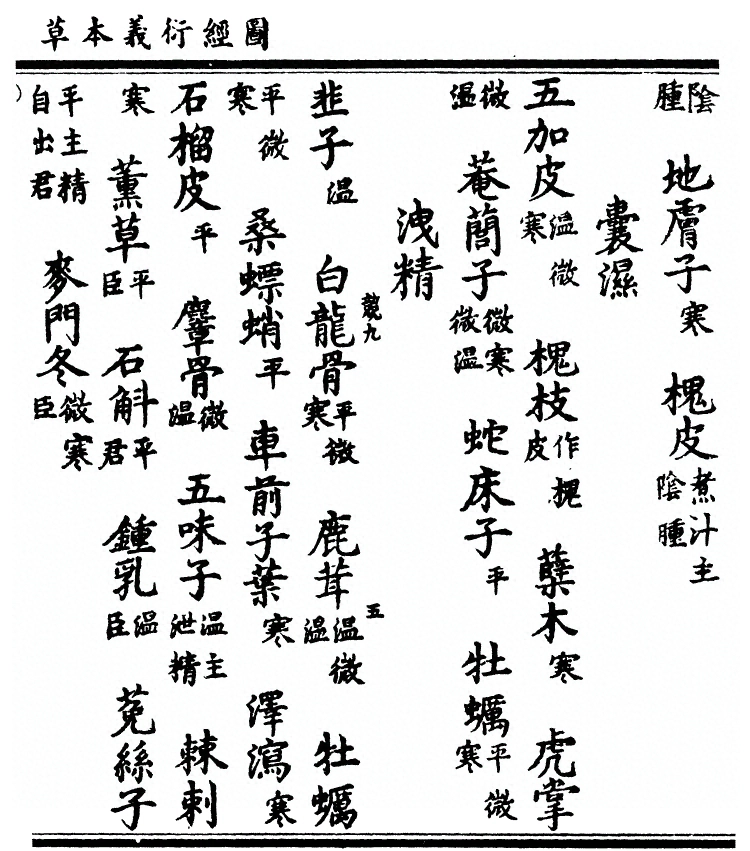 圖經衍義本草
陰腫 地膚子寒 槐皮煮汁主陰腫
囊濕
五加皮溫微寒 槐枝作槐皮 蘗木寒 虎掌
微溫 菴䕡子微寒微溫 蛇床子平 牡蠣平微寒
洩精
競九
五
韭子溫 白龍骨平微寒 鹿茸溫微溫 牡蠣
平微寒 桑螵蛸平 車前子葉寒 澤瀉寒
石榴皮平 麞骨微溫 五味子溫主泄精 棘刺
寒 薰草平臣 石斛平君 鍾乳溫臣 菟絲子
平主精自出君 麥門冬微寒臣